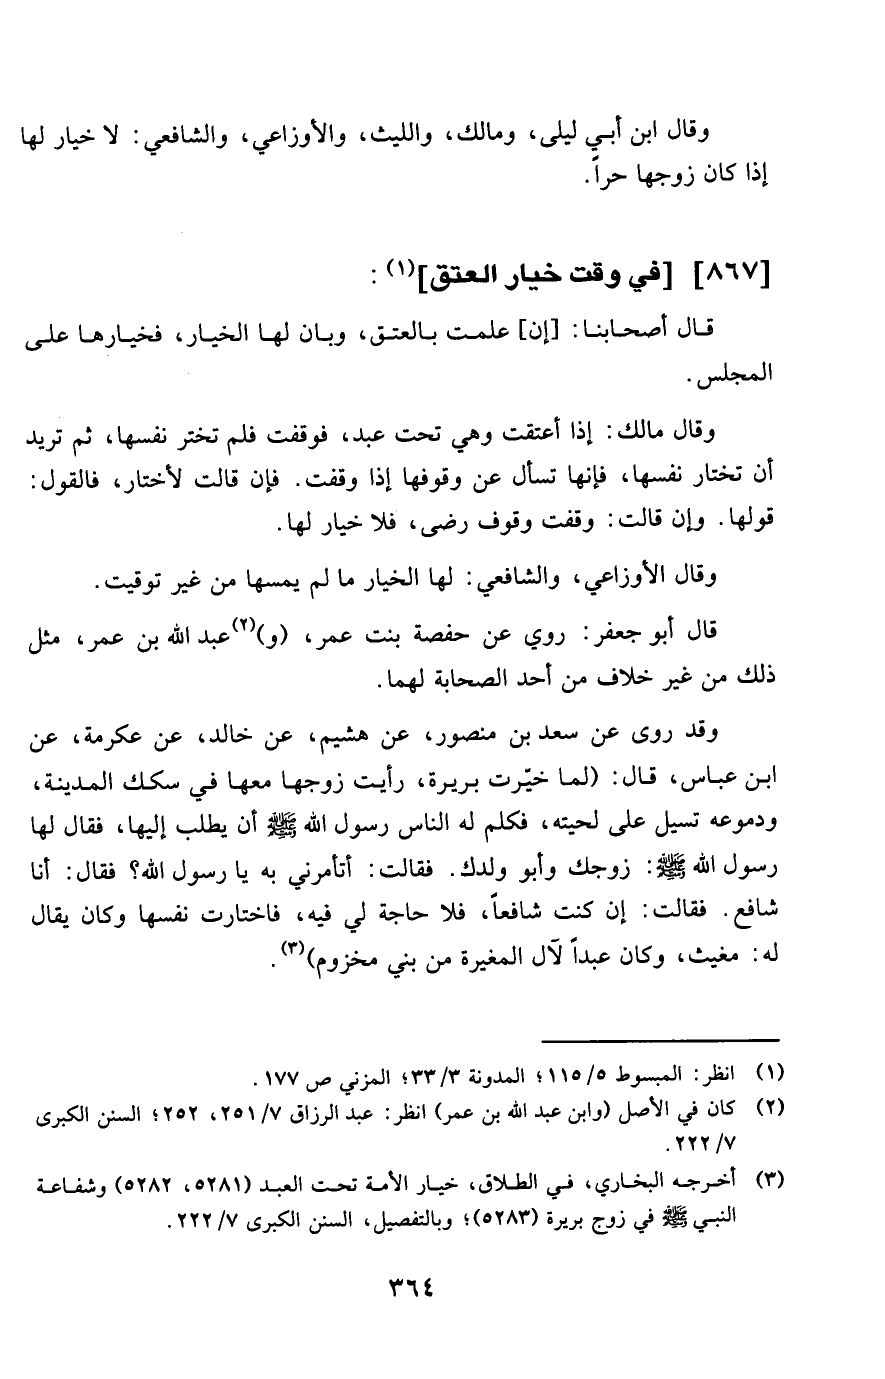 وقال ابن أبي ليلى، ومالك، والليث، والأوزاعي، والشافعي: لا خيار لها
إذا كان زوجها حراً.
[٨٦٧] [في وقت خيار العتق](١):
قال أصحابنا: [إن] علمت بالعتق، وبان لها الخيار، فخيارها على
المجلس.
وقال مالك: إذا أعتقت وهي تحت عبد، فوقفت فلم تختر نفسها، ثم تريد
أن تختار نفسها، فإنها تسأل عن وقوفها إذا وقفت. فإن قالت لأختار، فالقول:
قولها. وإن قالت: وقفت وقوف رضى، فلا خيار لها.
وقال الأوزاعي، والشافعي: لها الخيار ما لم يمسها من غير توقيت.
قال أبو جعفر: روي عن حفصة بنت عمر، (و)(٢)عبد الله بن عمر، مثل
ذلك من غير خلاف من أحد الصحابة لهما.
وقد روى عن سعد بن منصور، عن هشيم، عن خالد، عن عكرمة، عن
ابن عباس، قال: (لما خيّرت بريرة، رأيت زوجها معها في سكك المدينة،
ودموعه تسيل على لحيته، فكلم له الناس رسول الله ﷺ أن يطلب إليها، فقال لها
رسول الله ﷺ: زوجك وأبو ولدك. فقالت: أتأمرني به يا رسول الله؟ فقال: أنا
شافع. فقالت: إن كنت شافعاً، فلا حاجة لي فيه، فاختارت نفسها وكان يقال
له: مغيث، وكان عبداً لآل المغيرة من بني مخزوم)(٣).
(١) انظر: المبسوط ٥/ ١١٥؛ المدونة ٣/ ٣٣؛ المزني ص ١٧٧.
(٢) كان في الأصل (وابن عبد الله بن عمر) انظر: عبد الرزاق ٧/ ٢٥١، ٢٥٢؛ السنن الكبرى
٧/ ٢٢٢.
(٣) أخرجه البخاري، في الطلاق، خيار الأمة تحت العبد (٥٢٨١، ٥٢٨٢) وشفاعة
النبي ﷺ في زوج بريرة (٥٢٨٣)؛ وبالتفصيل، السنن الكبرى ٧/ ٢٢٢.
٣٦٤